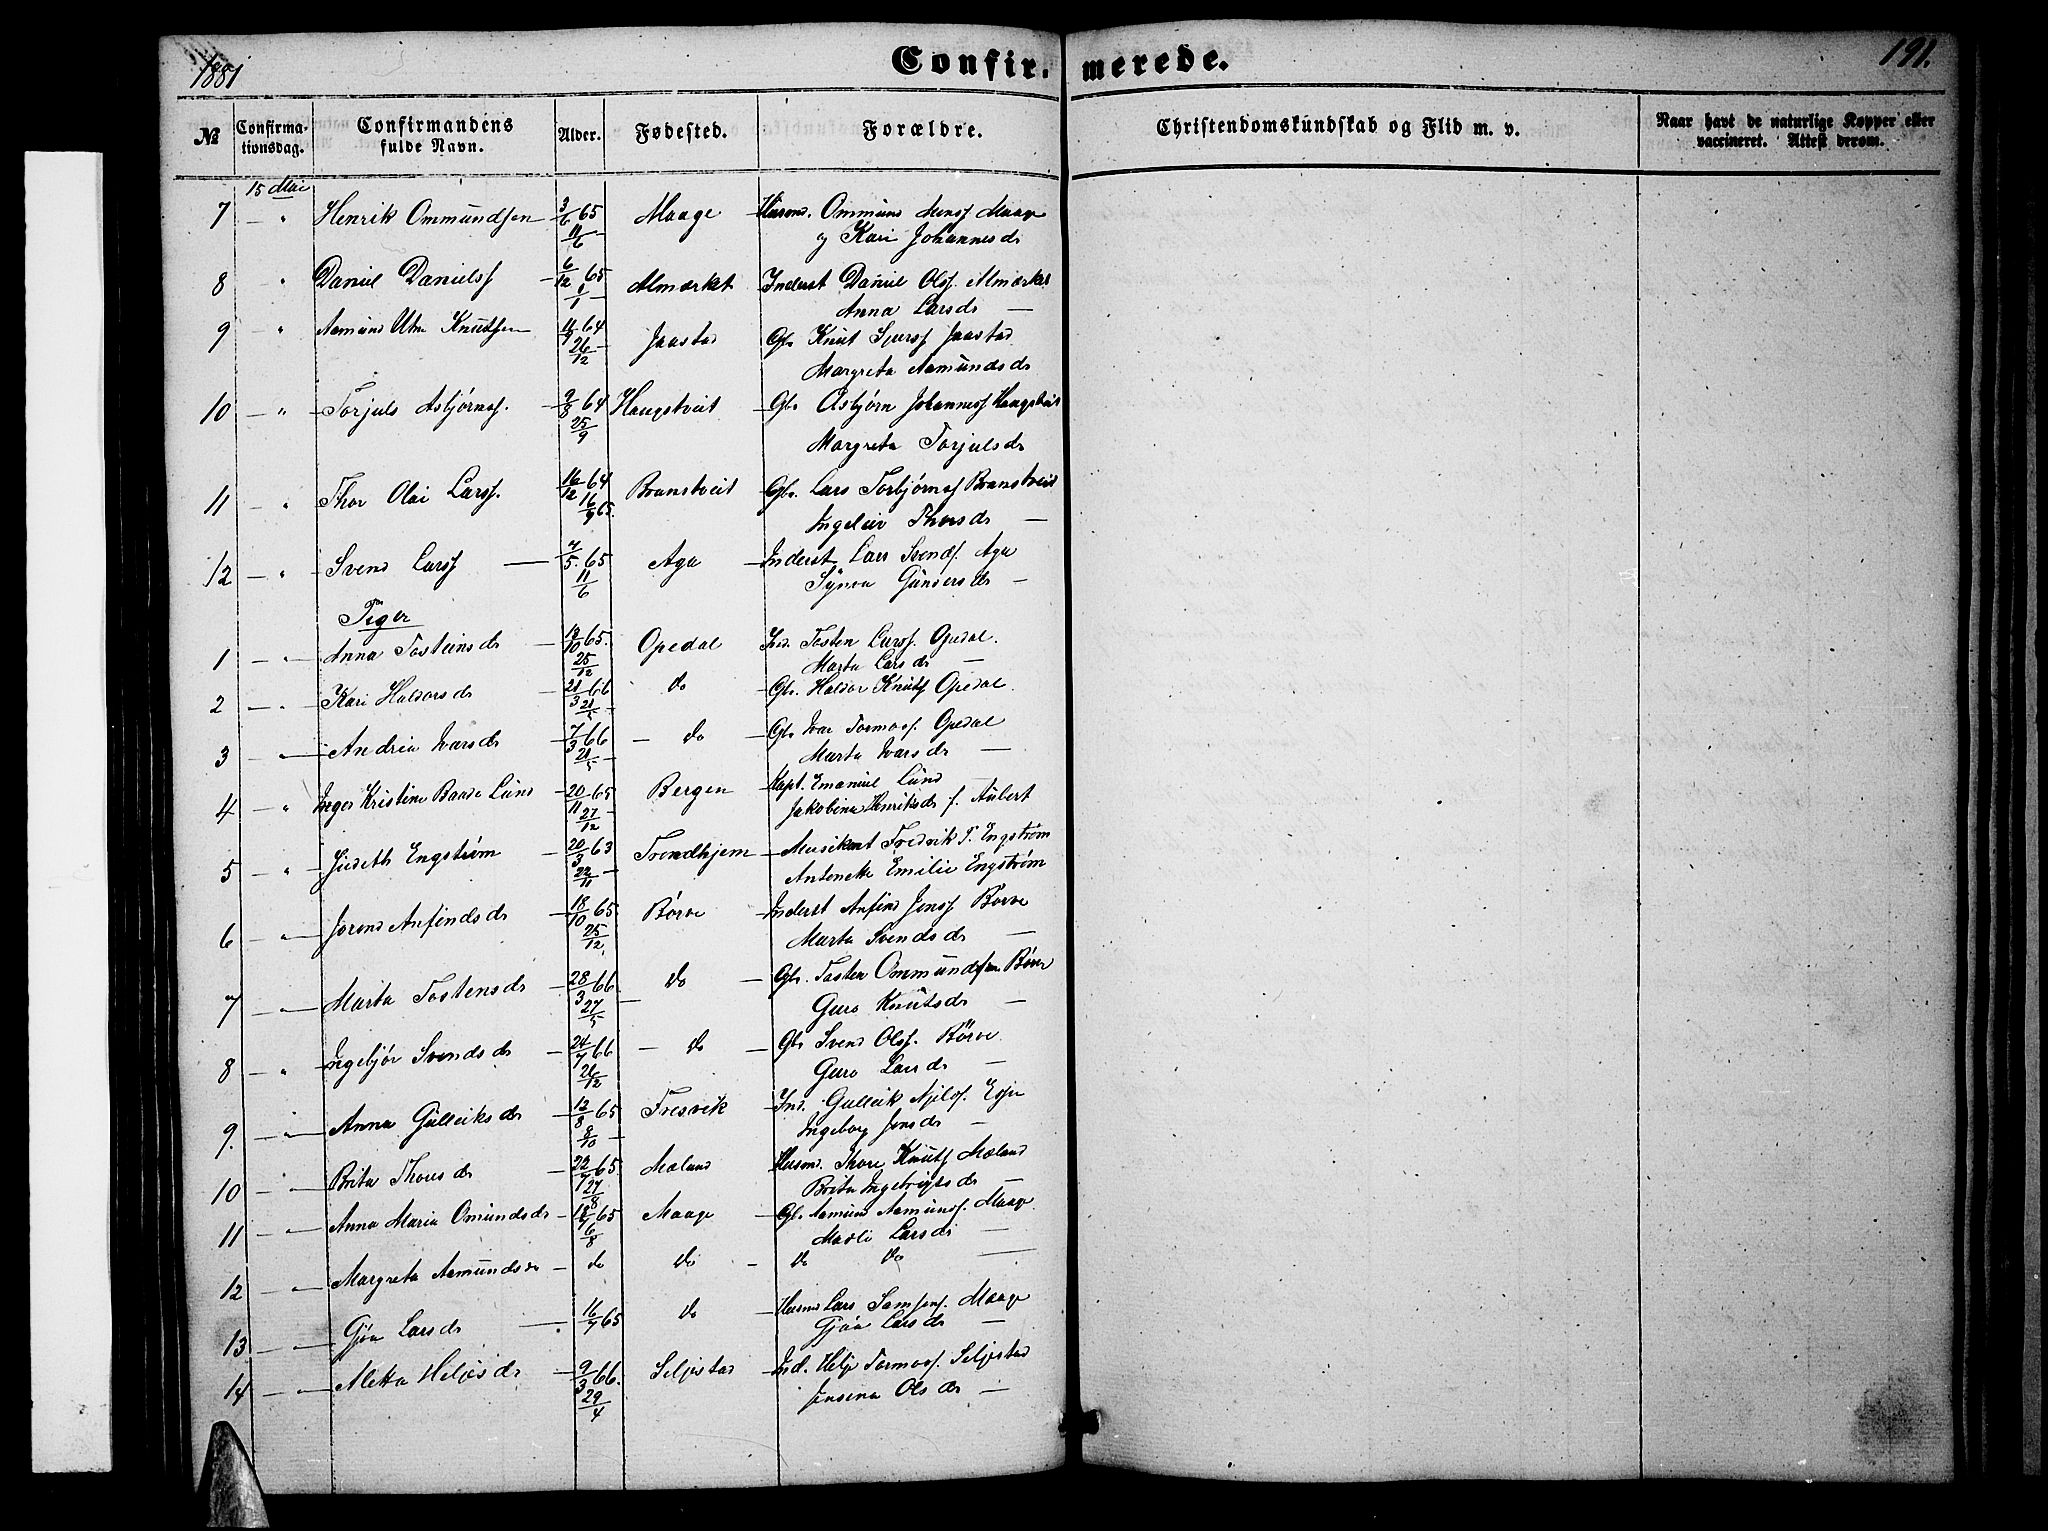 1881
Confirmerede.
191.
№
Confirmationsdag.
Confirmandens fulde Navn.
Alder.
Fødested.
Forældre.
Christendomskundskab og Flid m. v.
Naar havt de naturlige Kopper eller vaccineret. Attest derom.
15 Mai
7 — " Henrik Ommundsen 3/6 65 11/6 Maage Husmd. Ommund Maage
og Kari Johannesdr
8 " Daniel Danielsf 6/12 65 1/1 Almærket Inderst Daniel Olsf. Almærket
Anna Larsdr —
9 " Aamund Knudsen 64 26/12 Jaastad Gbr Knut Sjursf Jaastad
Margreta Aamundsdr
10 — " Torjuls Asbjørnsf. 9/8 64 25/9 Haugstveit Gbr Asbjørn Johannesf Haugstveit
Margreta Torjulsdr
11 — " Thor Olai Larsf. 16/12 64 16/9 65. Branstveit Gbr. Lars Torbjørnsf Branstveit
Ingeleiv Thorsdr —
12 — " Svend Larsf — 7/5. 65 11/6 Aga Inderst Lars Svendsf. Aga
Synva Gundersdr —
Piger
1 — " Anna Tosteinsdr 65. 25/12 Opedal Ind. Tosten Larsf. Opedal.
Marta Larsdr —
2 — " Kari Haldorsdr 21/3 66 21/5 do Gbr. Haldor Knutsf Opedal.
3 " Andria Ivarsdr 7/3 66 21/5 — do Gbr Ivar Tormosf. Opedal
Marta Ivarsdr —
4 — " Inger Kristine Baade Lund 20/11 65 27/12 Bergen Kapt. Emanuel Lund
Jakobine Henriksdr f. Aubert
5 — " Judith Engstrøm 20/3 63 22/11 Trondhjem Musikant Fredrik P. Engstrøm
Antonette Emilie Engstrøm
6 " Jorond Anfindsdr 18/10 65 25/12 Børve Inderst Anfind Jonsf Børve
Marta Svendsdr —
7 " Marita Tostensdr 28/3 66 27/5 do Gbr. Tosten Ommundsen Børve
Guro Knutsdr —
8 — " Ingebjør Svendsdr 24/7 66 do Gbr Svend Olsf. Børve
Guro Larsdr —
9. — " Anna Gulleiksdr 12/8 65 8/10 Tresvik Ind. Gulleik
Ingeborg Jonsdr —
10 — " Brita Thorsdr 65. 27/8 Mæland Husmd. Thore Knutsf Mæland
Brita Ingebrigtsdr —
11 " Anna Maria Omundsdr 65 6/8 Maage Gbr Aamund Aamundsf. Maage
Madli Larsdr —
12 " Margreta Aamundsdr do do do do —
13 " Gjøa Larsdr 16/7 65 do Husmd Lars Samsonsf. Maage
Gjøa Larsdr —
14 " Metta Heljesdr 9/3 66. 29/4 Seljestad Ind. Helje Tormosf. Seljestad
Jensena Olsdr —